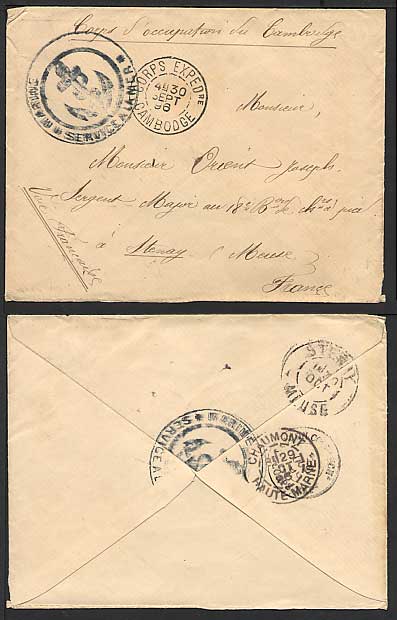 Corps d'occupation du Cambodge
MARINE * SERVICE A LA MER *
CORPS EXPEDRE
4E 30
SEPT
86
CAMBODGE
Monsieur,
Monsieur Orient Joseph,
Sergent-Major au 18e Bon de chrs à pied
à Stenay (Meuse)
France
Voie française
STENAY
OCT
MEUSE
SERVICE A L
CHAUMONT
29
HAUTE-MARNE